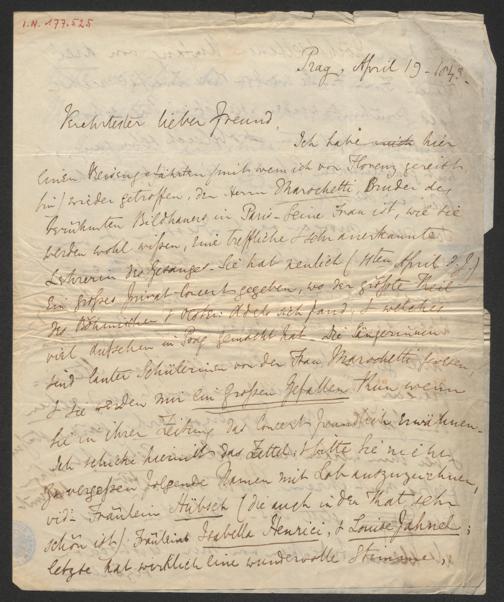 I.N. 177.525
Prag, April 19 - 1843 -
Verehrtester lieber Freund
Ich habe mich hier
einen Reisengefährten (mit wem ich von Florenz gereist
bin) wieder getroffen, den Herrn Marochetti, Bruder des
berühmten Bildhauers in Paris - Seine Frau ist, wie Sie
werden wohl wissen, eine treffliche & sehr anerkannte
Lehrerin des Gesanges - Sie hat neulich (April d. J.)
Ein großes Privat Concert gegeben, wo der größte Theil
des Böhmischen & Adels sich fand, & welches
viel Aufsehen in Prag gemacht hat - Die Sängerinnen
sind lauter Schülerinen von der Frau Marochetti
& Sie werden mir ein Großen Gefallen thun wenn
Sie in ihrer Zeitung das Concert freundlich Erwähnen -
Ich schicke hiermit das Zettel, & bitte Sie nicht
zu vergeßen folgende Namen mit Lob auszuzeichnen,
vid: Fräulein Hübsch (die auch in der That sehr
schön ist) Fräulein Isabella Henrici, & Louise Jahnel;
letzte hat wirklich eine wundervolle Stimme,